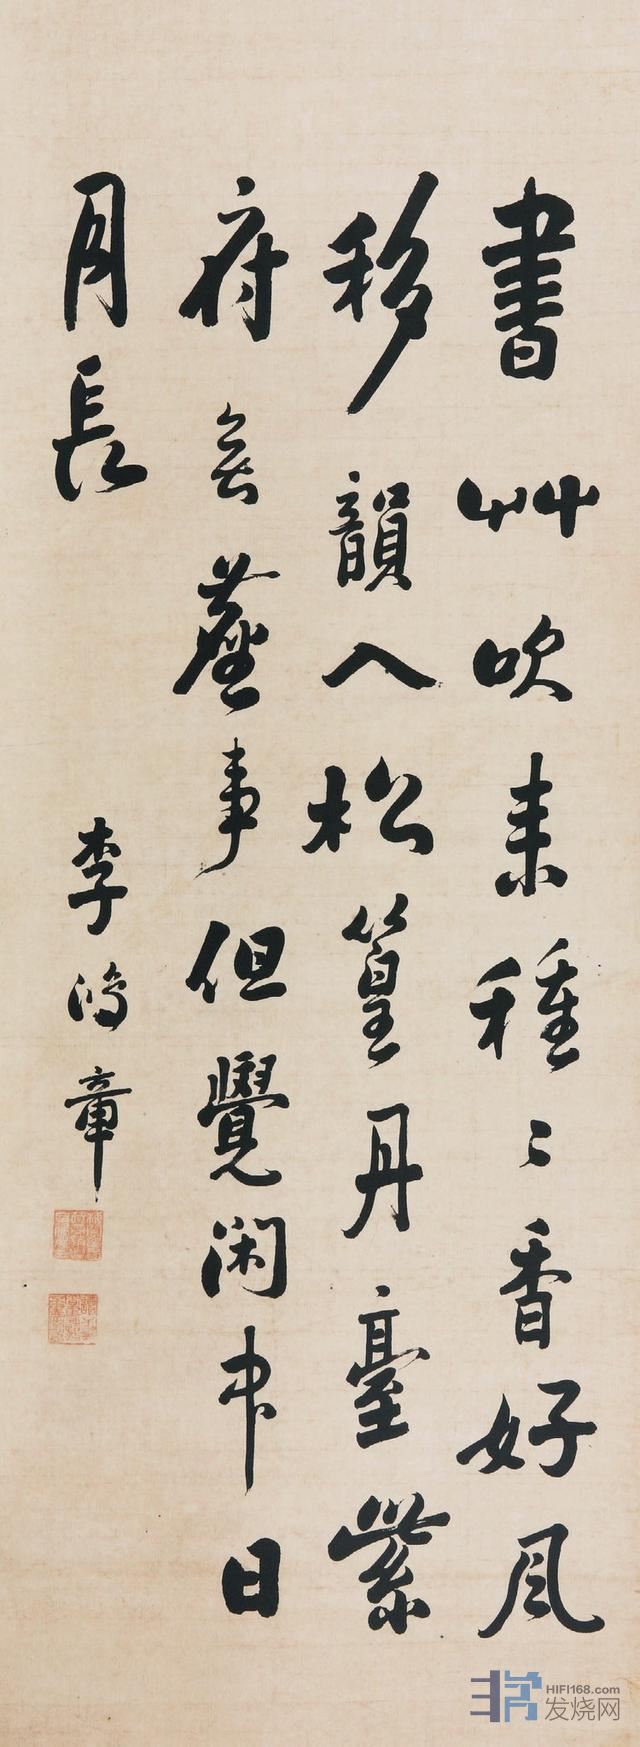 書艸吹来種々香好風
移韻入松篁丹臺紫
府無塵事但覺閑中日
月長
李鴻章
HIFI168.com
发烧网